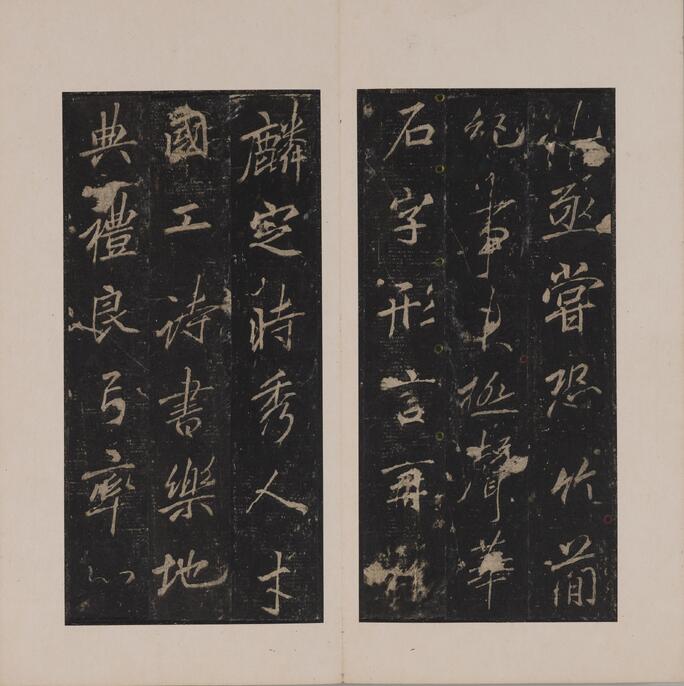 烝嘗恐竹簡
紀事未極聲華
石字形言再
麟定時秀人才
國工詩書樂地
典禮良弓率